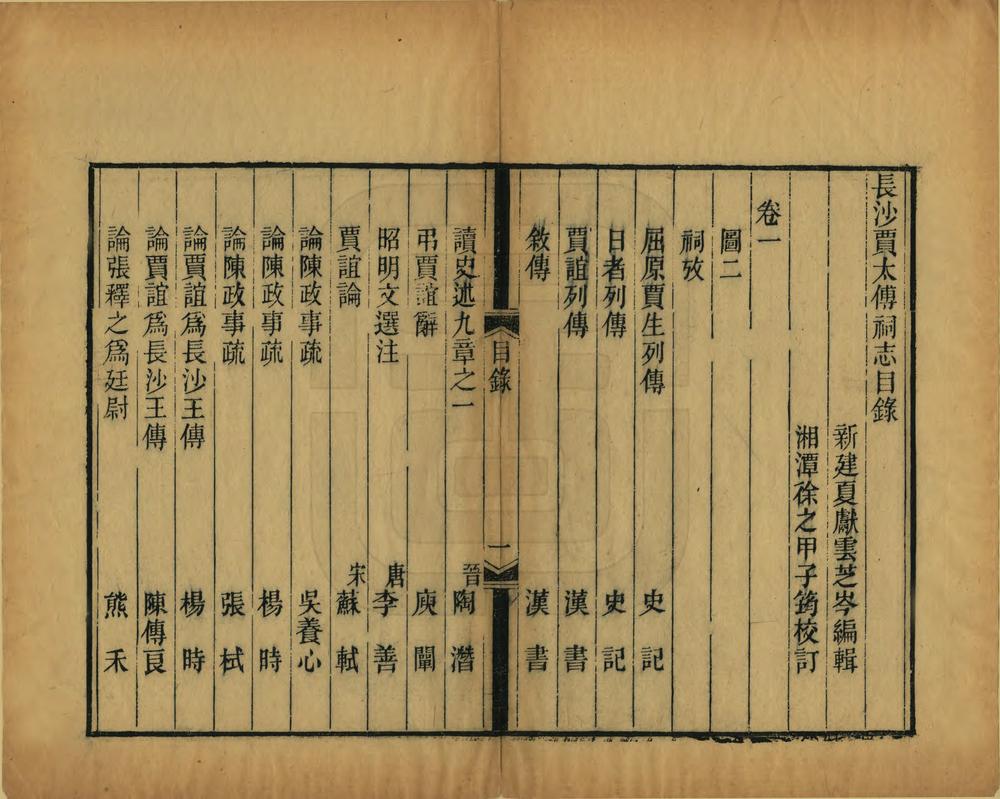 長沙賈太傅祠志目錄
新建夏獻雲芝岑編輯
湘潭徐之甲子筠校訂
卷一
圖二
祠攷
屈原賈生列傳 史記
日者列傳 史記
賈誼列傳 漢書
敘傳 漢書
目錄 一
讀史述九章之一 晉陶潛
弔賈誼辭 庾闡
昭明文選注 唐李善
賈誼論 宋蘇軾
論陳政事疏 吳養心
論陳政事疏 楊時
論陳政事疏 張栻
論賈誼爲長沙王傅 楊時
論賈誼爲長沙王傅 陳傅良
論張釋之爲廷尉 熊禾